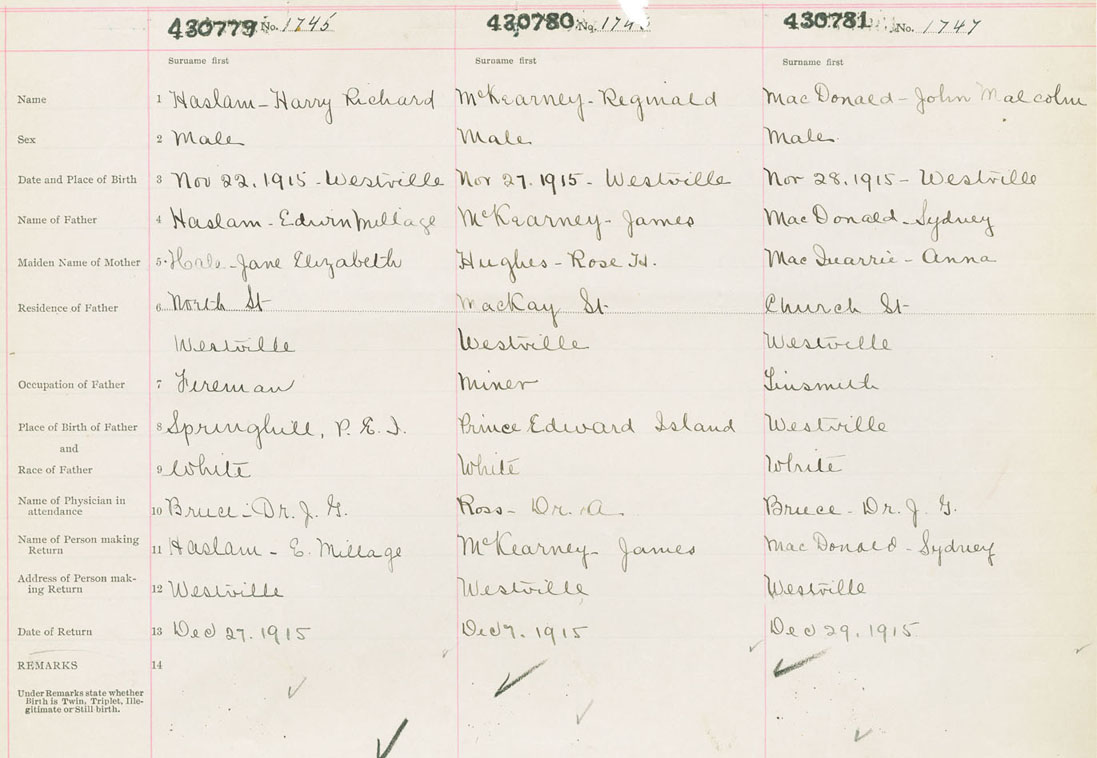 430779 No. 1745 430780 No. 430781 No. 1747
Surname first Surname first Surname first
Name 1 Haslam - Harry Richard McKearney - Reginald MacDonald - John Malcolm
Sex 2 Male Male Male
Date and Place of Birth 3 Nov 22. 1915 - Westville Nov 27. 1915 - Westville Nov 28. 1915 - Westville
Name of Father 4 Haslam - Edwin Millage McKearney - James MacDonald - Sydney
Maiden Name of Mother 5 - Jane Elizabeth Hughes - Rose H. MacQuarrie - Anna
Residence of Father 6 North St MacKay St Church St
Westville Westville Westville
Occupation of Father 7 Fireman Miner Tinsmith
Place of Birth of Father 8 Springhill, P. E. I. Prince Edward Island Westville
and
Race of Father 9 White White White
Name of Physician in
attendance 10 Bruce - Dr. J. G. Ross - Dr. A. Bruce - Dr. J. G.
Name of Person making
Return 11 Haslam - E. Millage McKearney - James MacDonald - Sydney
Address of Person mak-
ing Return 12 Westville Westville Westville
Date of Return 13 Dec 27. 1915 Dec 7. 1915 Dec 29. 1915
REMARKS 14
Under Remarks state whether
Birth is Twin, Triplet, Ille-
gitimate or Still birth.